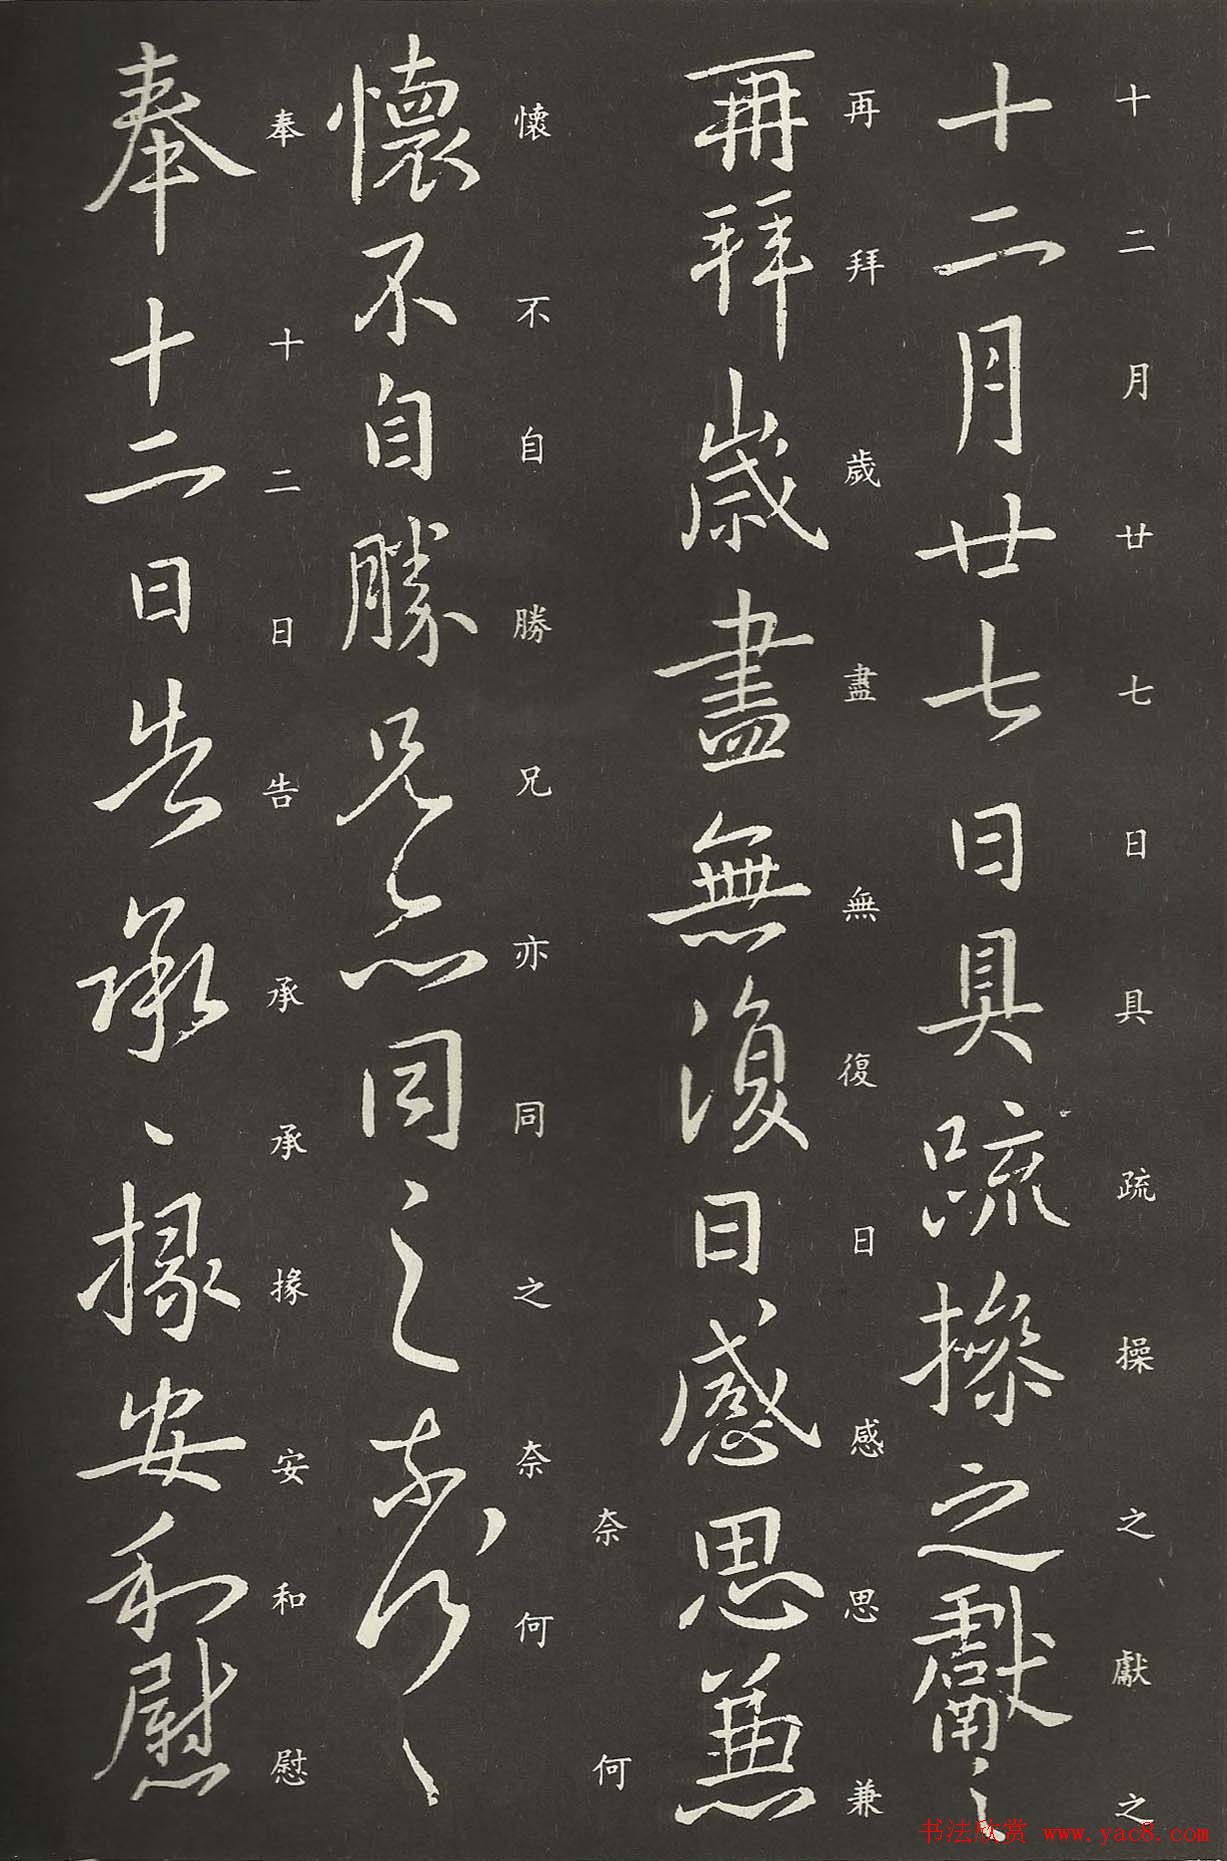 十二月廿七日具疏操之獻之
十二月廿七日具疏操之獻之
再拜歲盡無復日感思兼
再拜歲盡無復日感思兼
懷不自勝兄亦同之奈何奈何
懷不自勝兄亦同之奈何〻〻
奉十二日告承承掾安和慰
奉十二日告承〻掾安和慰
书法欣赏 www.yac8.com